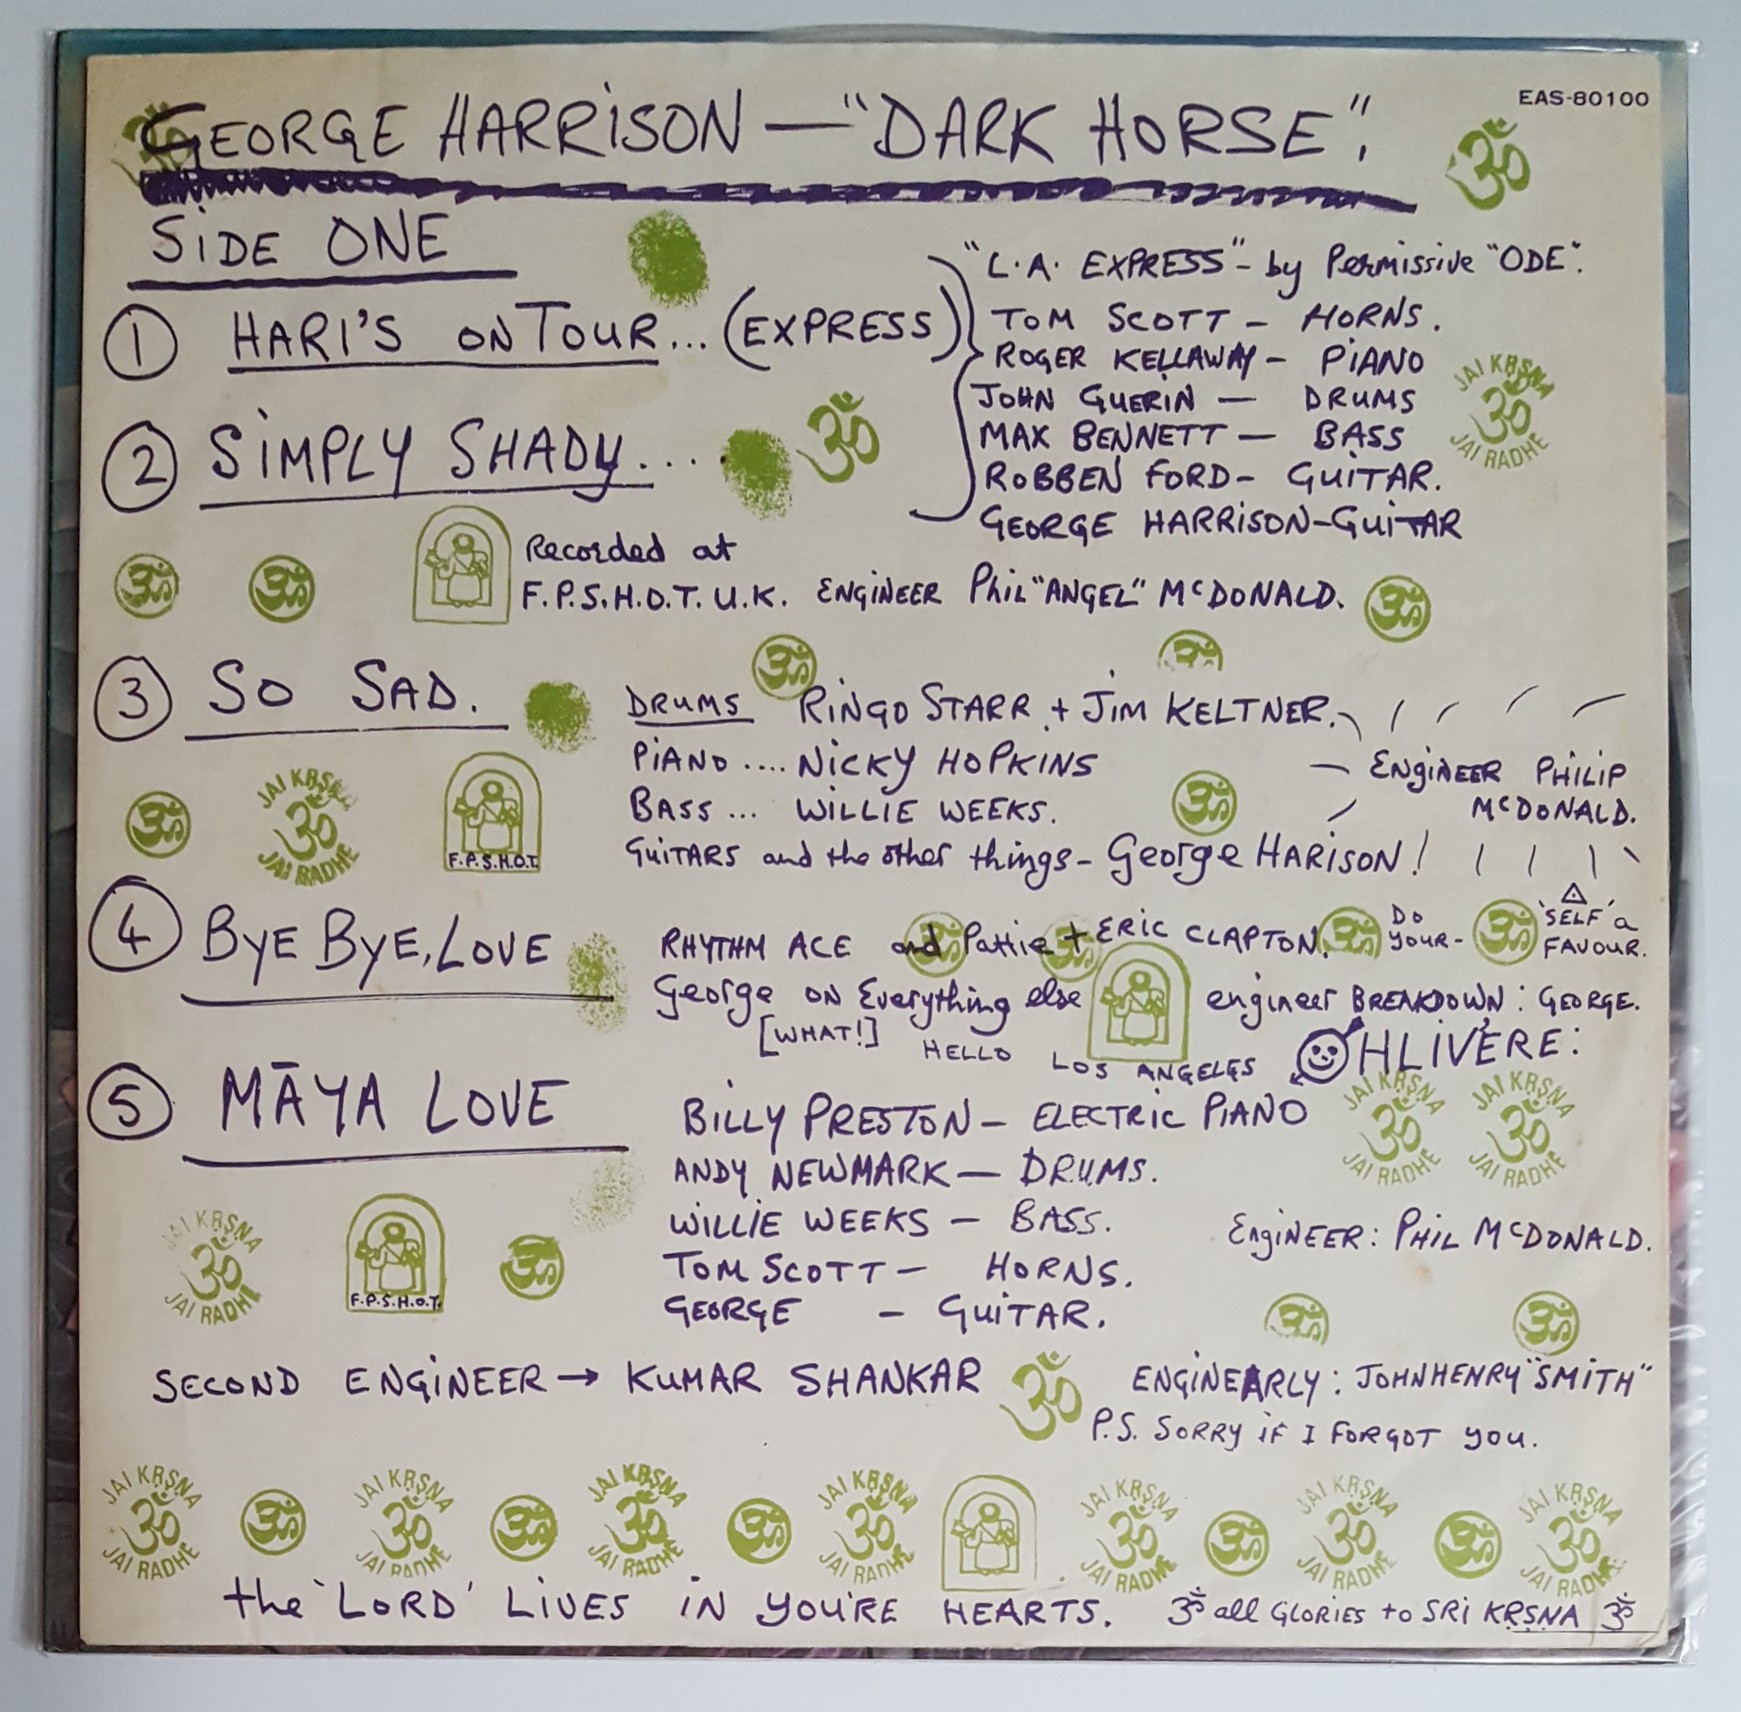 EAS-80100
GEORGE HARRISON — "DARK HORSE".
SIDE ONE
① HARI'S ON TOUR... (EXPRESS)
"L.A. EXPRESS" - by Permissive "ODE".
TOM SCOTT - HORNS.
ROGER KELLAWAY - PIANO
JOHN GUERIN — DRUMS
MAX BENNETT — BASS
ROBBEN FORD - GUITAR.
GEORGE HARRISON - GUITAR
JAI KRṢNA
ॐ
JAI RADHE
② SIMPLY SHADY...
Recorded at
F.P.S.H.O.T. U.K. ENGINEER Phil "ANGEL" McDONALD.
③ SO SAD.
DRUMS RINGO STARR + JIM KELTNER.
PIANO .... NICKY HOPKINS
BASS ... WILLIE WEEKS.
GUITARS and the other things - George HARISON!
ENGINEER PHILIP
McDONALD.
JAI KRṢNA
ॐ
JAI RADHE
F.P.S.H.O.T.
④ BYE BYE, LOVE
RHYTHM ACE and Pattie + ERIC CLAPTON.
DO
YOUR-
'SELF' a
FAVOUR.
George ON Everything else
engineer BREAKDOWN: GEORGE.
[WHAT!]
HELLO LOS ANGELES
OHLIVERE:
⑤ MĀYA LOVE
BILLY PRESTON - ELECTRIC PIANO
ANDY NEWMARK — DRUMS.
WILLIE WEEKS - BASS.
TOM SCOTT - HORNS.
GEORGE - GUITAR.
ENGINEER: PHIL McDONALD.
JAI KRṢNA JAI KRṢNA
ॐ ॐ
JAI RADHE JAI RADHE
JAI KRṢNA
ॐ
JAI RADHE
F.P.S.H.O.T.
SECOND ENGINEER → KUMAR SHANKAR
ENGINEARLY: JOHN HENRY "SMITH"
P.S. SORRY IF I FORGOT YOU.
JAI KRṢNA JAI KRṢNA JAI KRṢNA JAI KRṢNA JAI KRṢNA JAI KRṢNA JAI KRṢNA
ॐ ॐ ॐ ॐ ॐ ॐ ॐ ॐ ॐ ॐ ॐ ॐ
JAI RADHE JAI RADHE JAI RADHE JAI RADHE JAI RADHE JAI RADHE JAI RADHE
the 'LORD' LIVES IN YOU'RE HEARTS.
ॐ all GLORIES to SRI KRṢNA ॐ